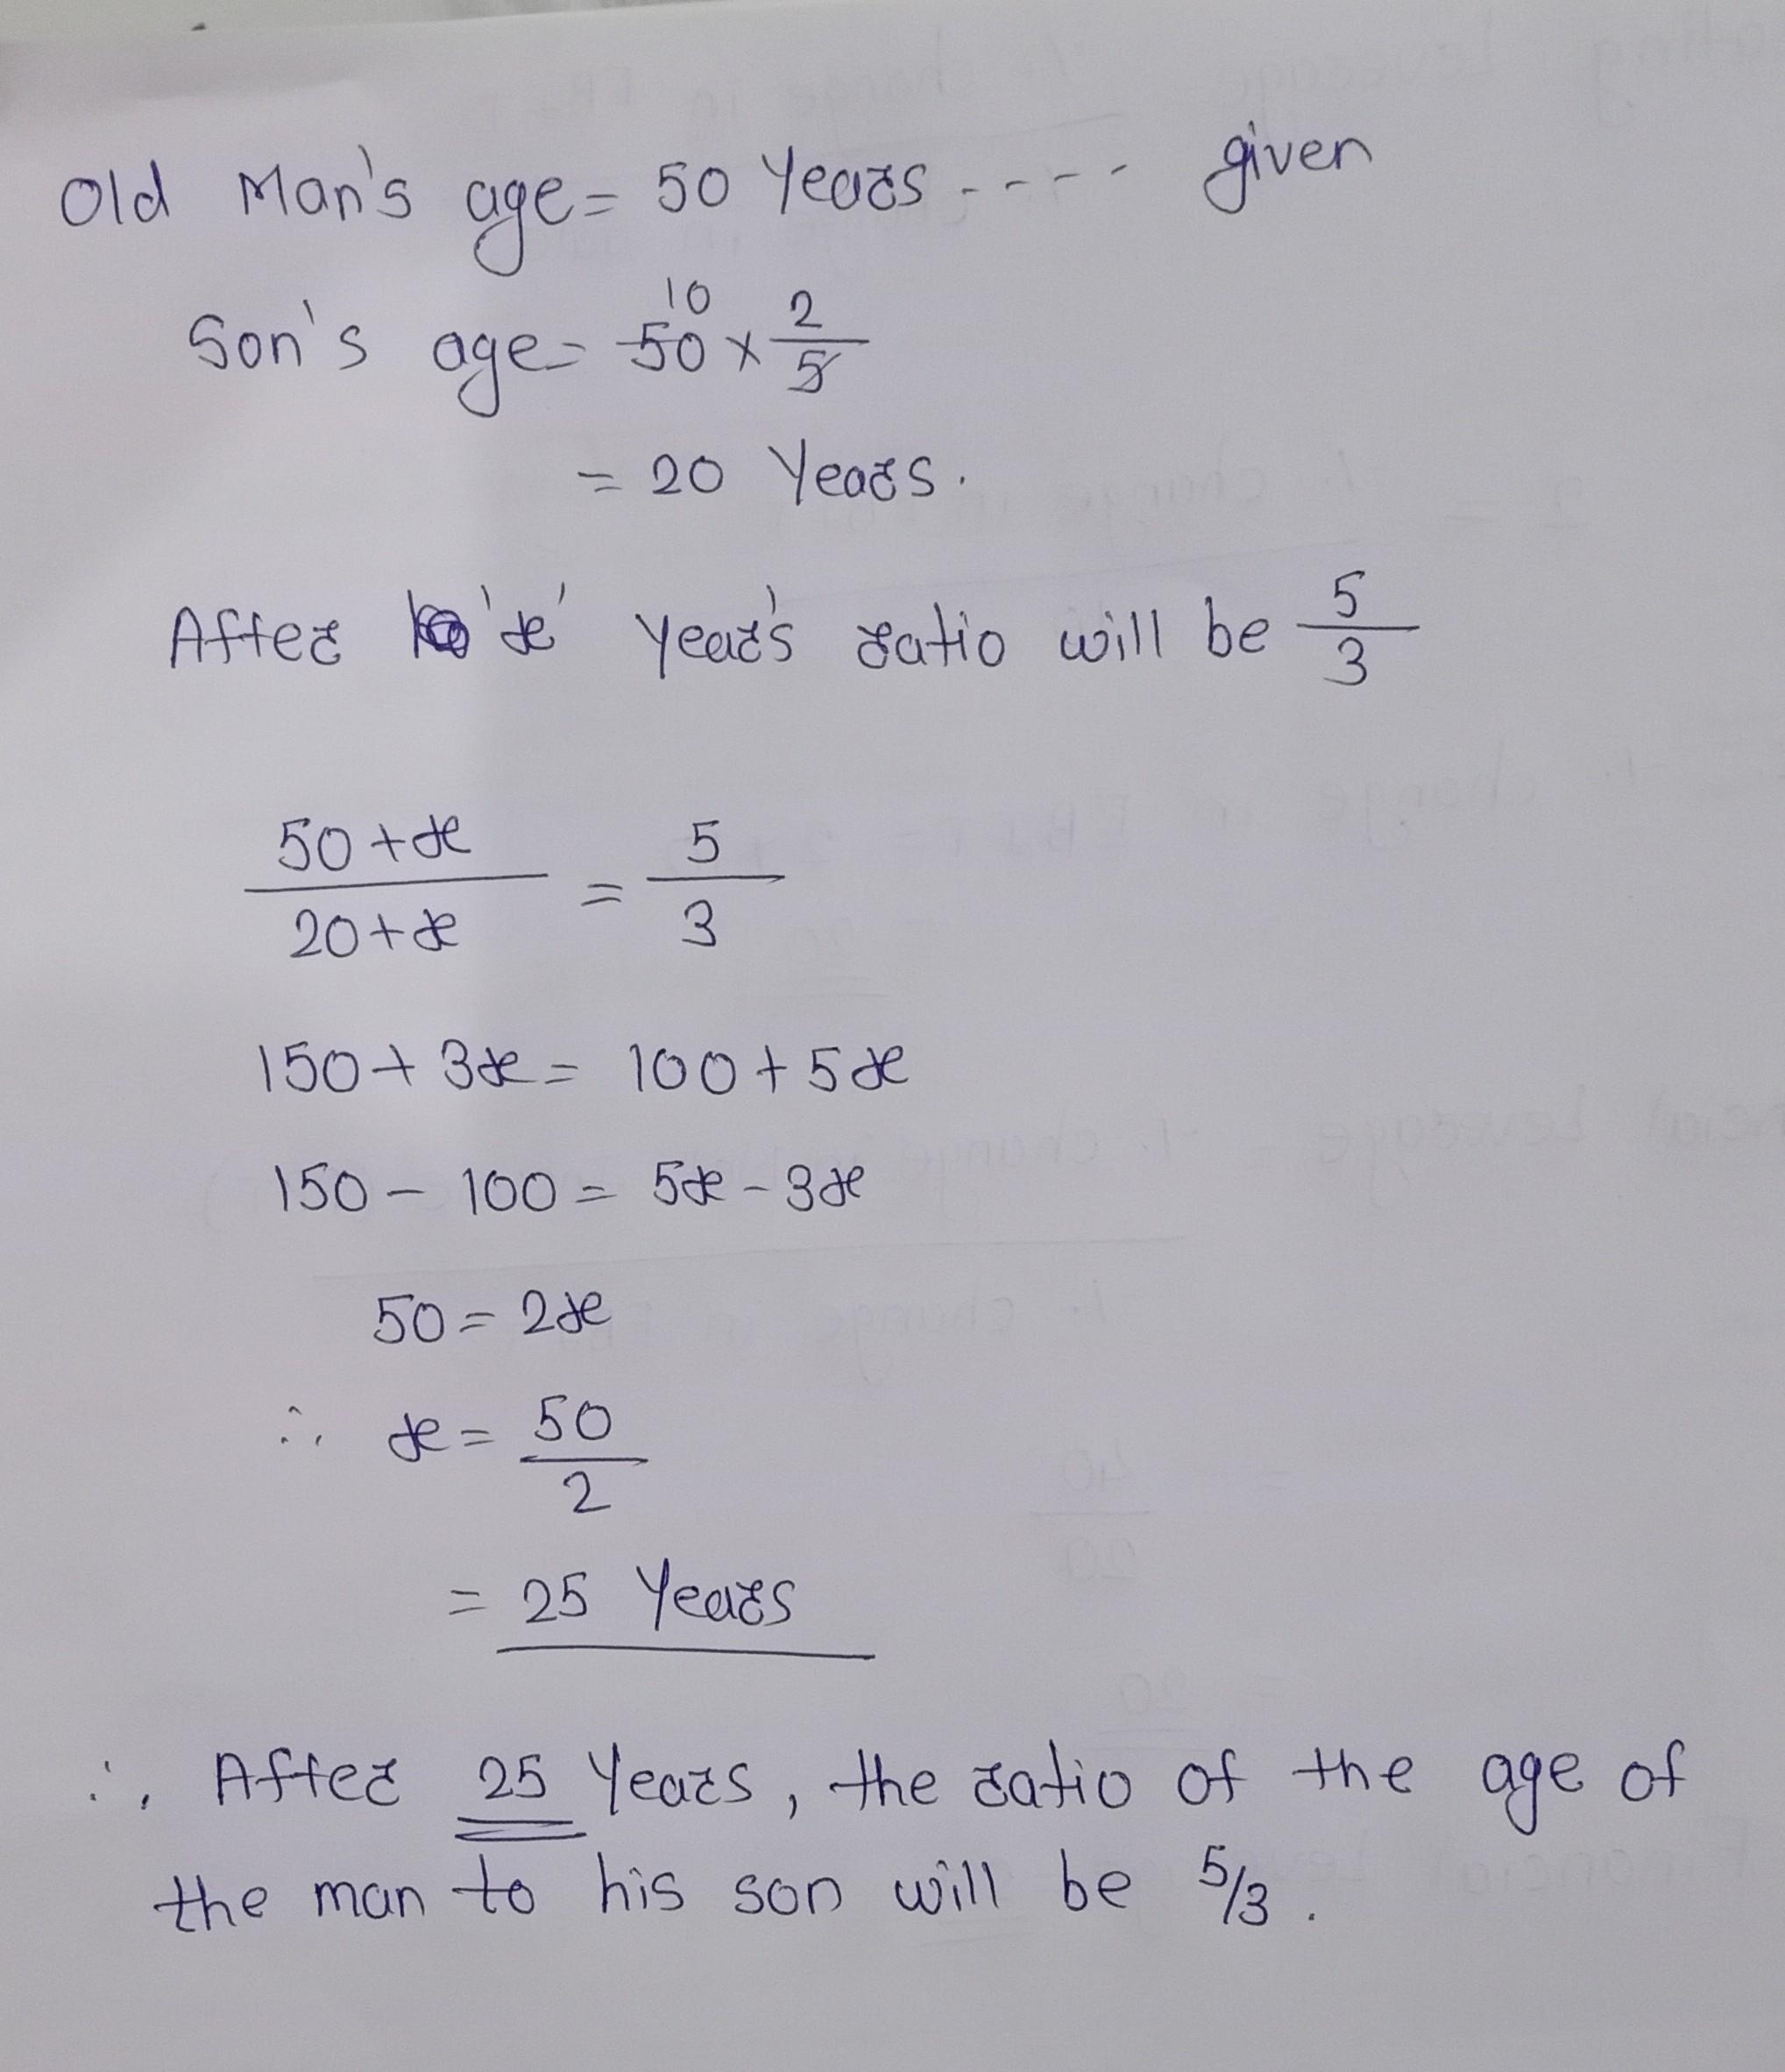 Old Man's age = 50 Years ---- given
Son's age = 50 10 × 2/5
= 20 Years.
After 'x' year's ratio will be 5/3
50+x / 20+x = 5/3
150 + 3x = 100 + 5x
150 - 100 = 5x - 3x
50 = 2x
∴ x = 50/2
= 25 Years
∴ After 25 Years, the ratio of the age of
the man to his son will be 5/3.